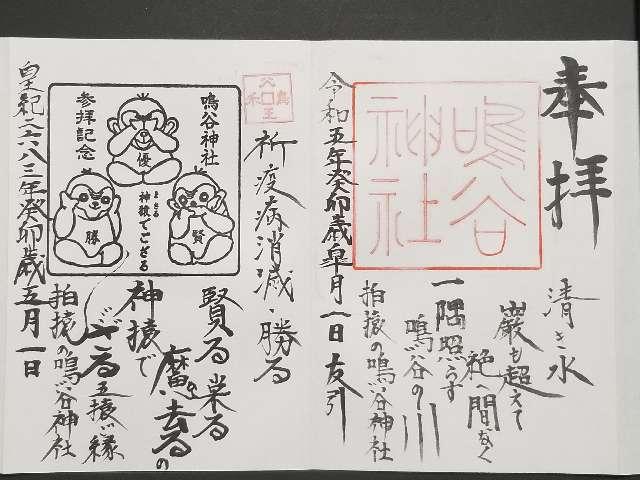 奉拝
鳴谷
神社
清き水
巌も超えて
絶へ間なく
一隅照らす
鳴谷の川
拍猿の鳴谷神社
令和五年癸卯歳皐月一日友引
祈疫病消滅・勝る
賢る来る
魔の去るの
神猿で
ござる五猿ご縁
拍猿の鳴谷神社
鳴谷神社
参拝記念
優
勝
賢
まさる
神猿でござる
皇紀二六八三年癸卯歳五月一日